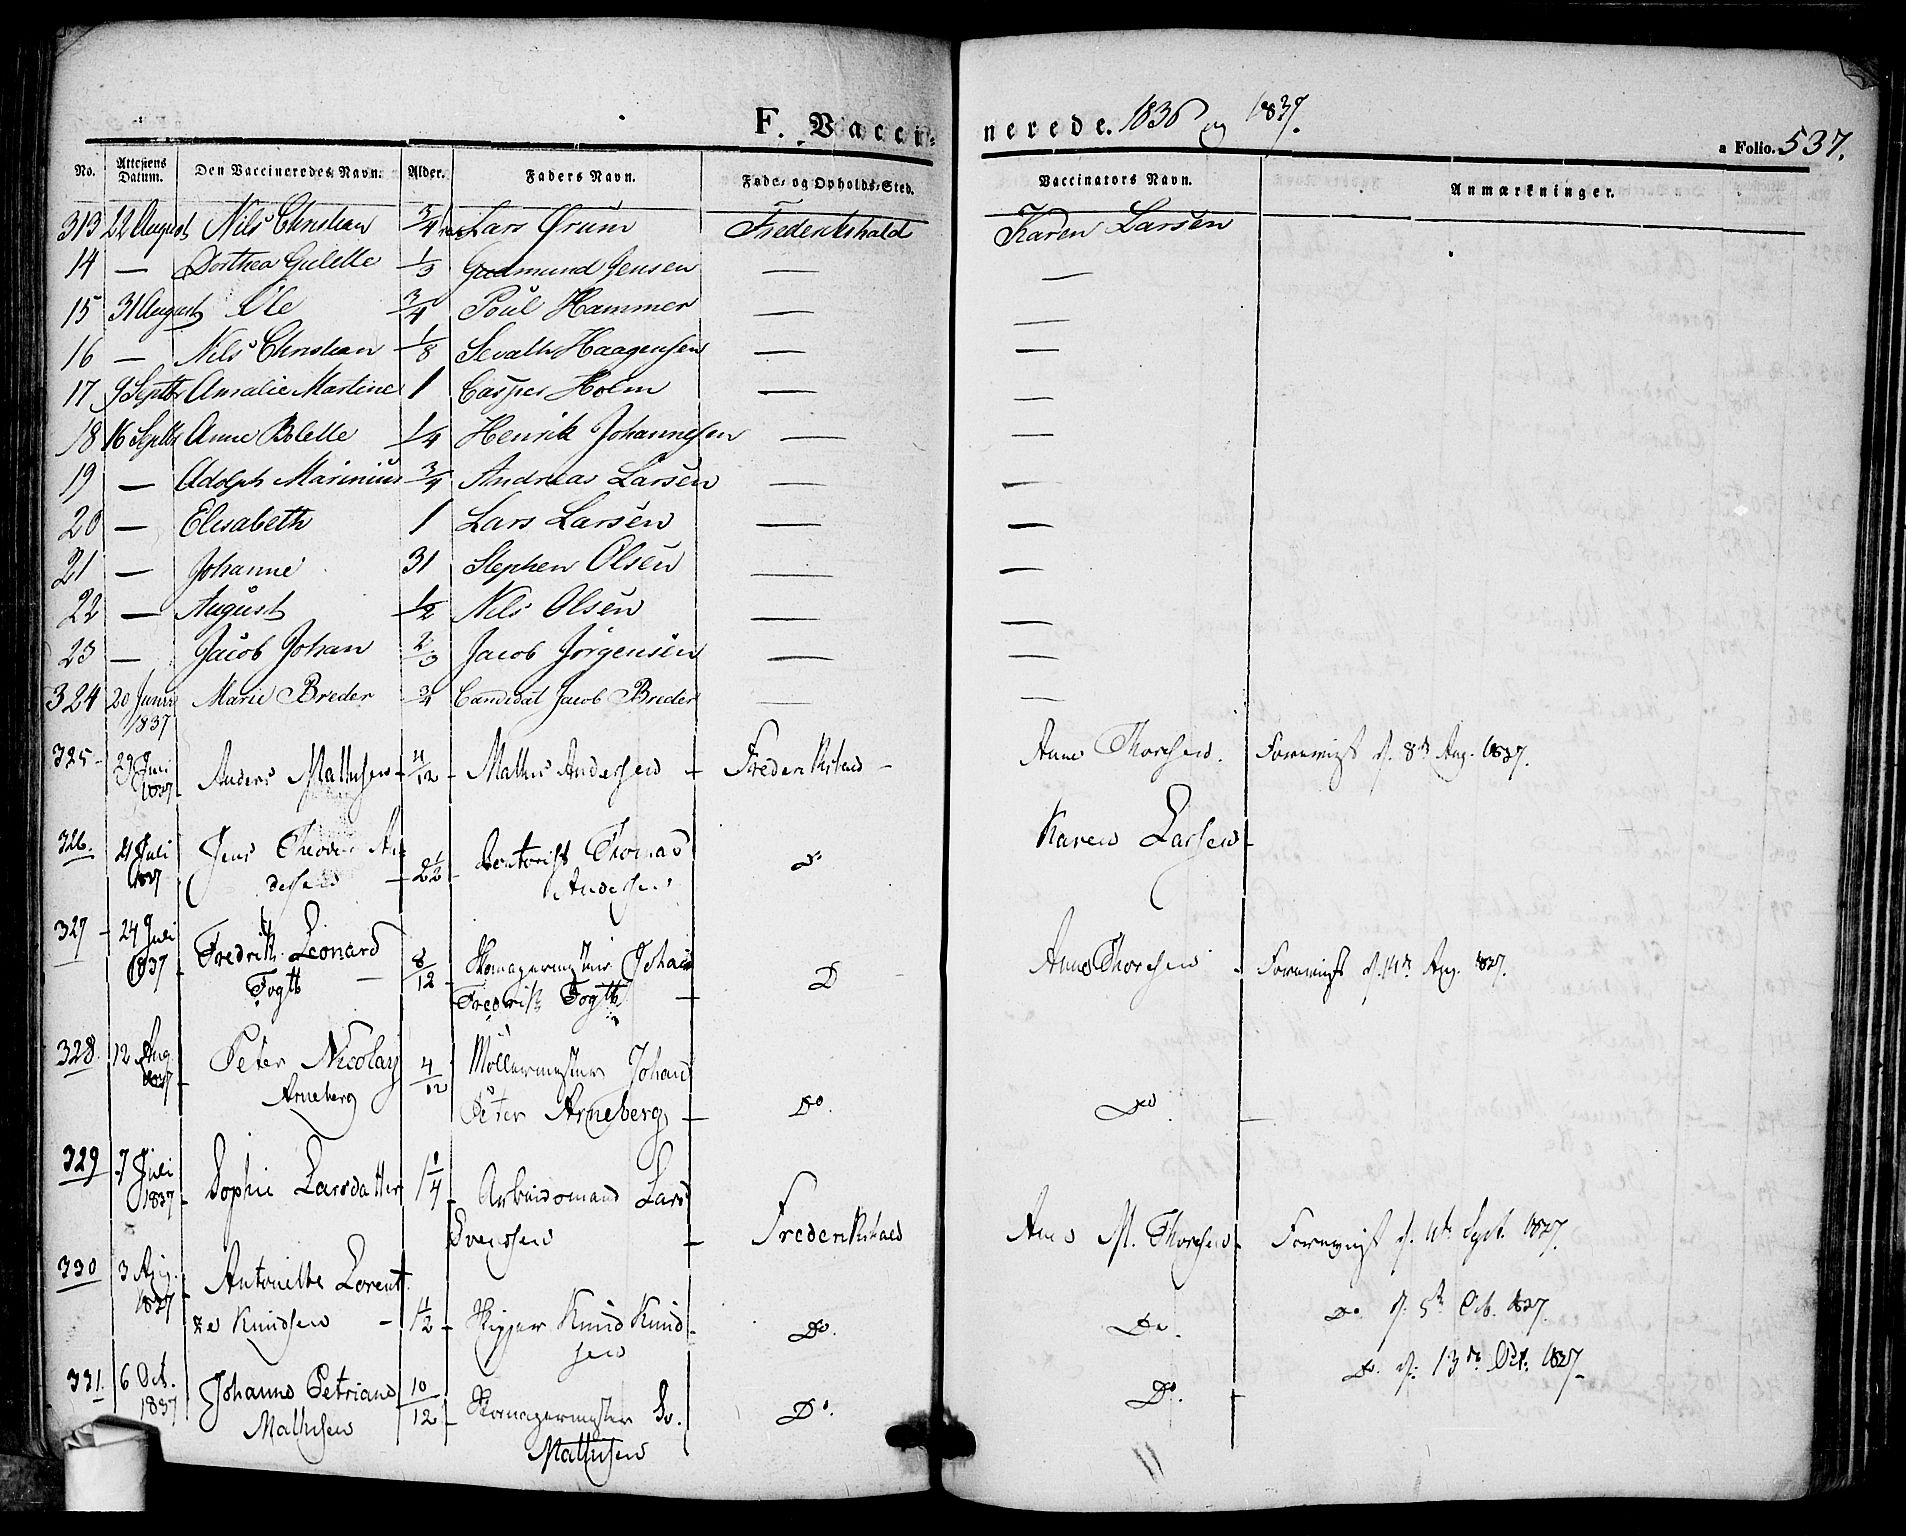 F. Vaccinerede. 1836 og 1837.
a Folio. 537.
No. Attestens Datum. Den Vaccineredes Navn. Alder. Faders Navn. Føde- og Opholds-Sted. Vaccinators Navn. Anmærkninger.
313 22 August Nils Christian 3/4 Lars Ørum Frederikshald Karen Larsen
14 — Dorthea Gulette 1/3 Gudmund Jensen — —
15 31 August Ole 3/4 Poul Hammer — —
16 — Nils Christian 1/8 Sevalh Haagensen — —
17 9 Septbr Amalie Martine 1 Casper Holm — —
18 16 Septbr Anne Bolette 1/4 Henrik Johannesen — —
19 — Adolph Marinius 3/4 Andreas Larsen — —
20 — Elisabeth 1 Lars Larsen — —
21 — Johanne 31 Stephen Olsen — —
22 — August 1/2 Nils Olsen — —
23 — Jacob Johan 2/3 Jacob Jörgensen — —
324 20 Juni 1837 Marie Breder 3/4 Candidat Jacob Breder — —
325 - 29 Juli 1837 Anders Mathisen - 4/12 - Mathis Andersen - Frederikshald - Anne Thoresen. Foreviist d. 8de Aug. 1837.
326. 21 Juli 1837 Jens Theodor An-
dersen - 2 1/2 - Thomas
Andersen Do Karen Larsen -
327 - 24 Juli 1837 - Fredrik Leonard
Fogth - 8/12 - Skomagermester Johan
Fredrik Fogth - D - Anne Thoresen - Foreviist d. 14de Aug. 1837.
328. 12 Aug. 1837 - Peter Nicolay
Arneberg 4/12 Möllermester Johan
Peter Arneberg - Do. Do. -
329 7 Juli 1837 - Sophie Larsdatter 1 1/4 - Arbeidsmand Lars
Svensen - Frederikshald Anne M. Thoresen - Foreviist d. 4de Sept. 1837.
330 3 Aug. 1837 - Antonette Lorent-
ze Knudsen - 1 1/2 - Skipper Knud Knud-
sen Do. Do. Do. d. 5te Octb. 1837.
331. 6 Oct. 1837 Johanne Petriane
Mathisen 10/12 - Skomagermester Sv.
Mathisen Do. Do. - Do. d. 13de Oct. 1837 -